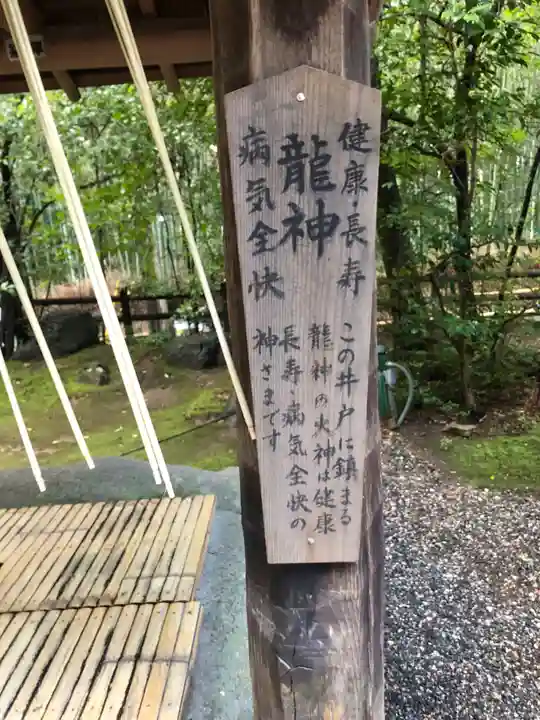 健康・長寿
龍神
病気全快
この井戸に鎮まる
龍神の火神は健康
長寿・病気全快の
神さまです